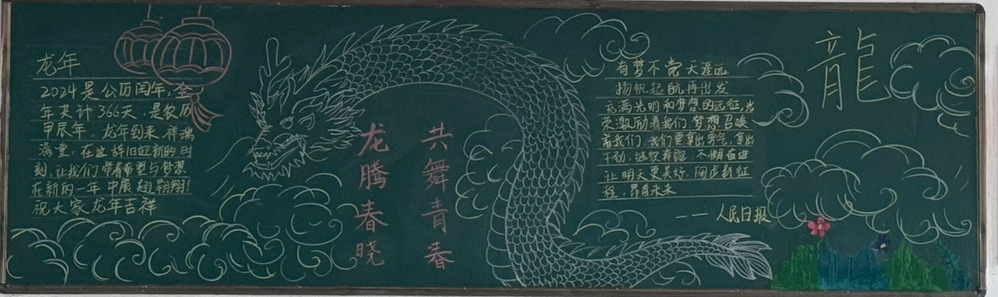 龙年
2024是公历闰年,全
年共计366天,是农历
甲辰年。龙年到来,祥瑞
海重。在这辞旧迎新的时
刻,让我们带着希望与梦想
在新的一年中展翅翱翔!
祝大家龙年吉祥
龙腾春晓
共舞青春
有梦不觉天涯远
扬帆起航再出发
充满光明和梦想的远征,光
荣激励着我们,梦想召唤
着我们,我们要拿出勇气,拿出
干劲,
让明天更美好,阔步新征
程,昂首未来
——人民日报
龍